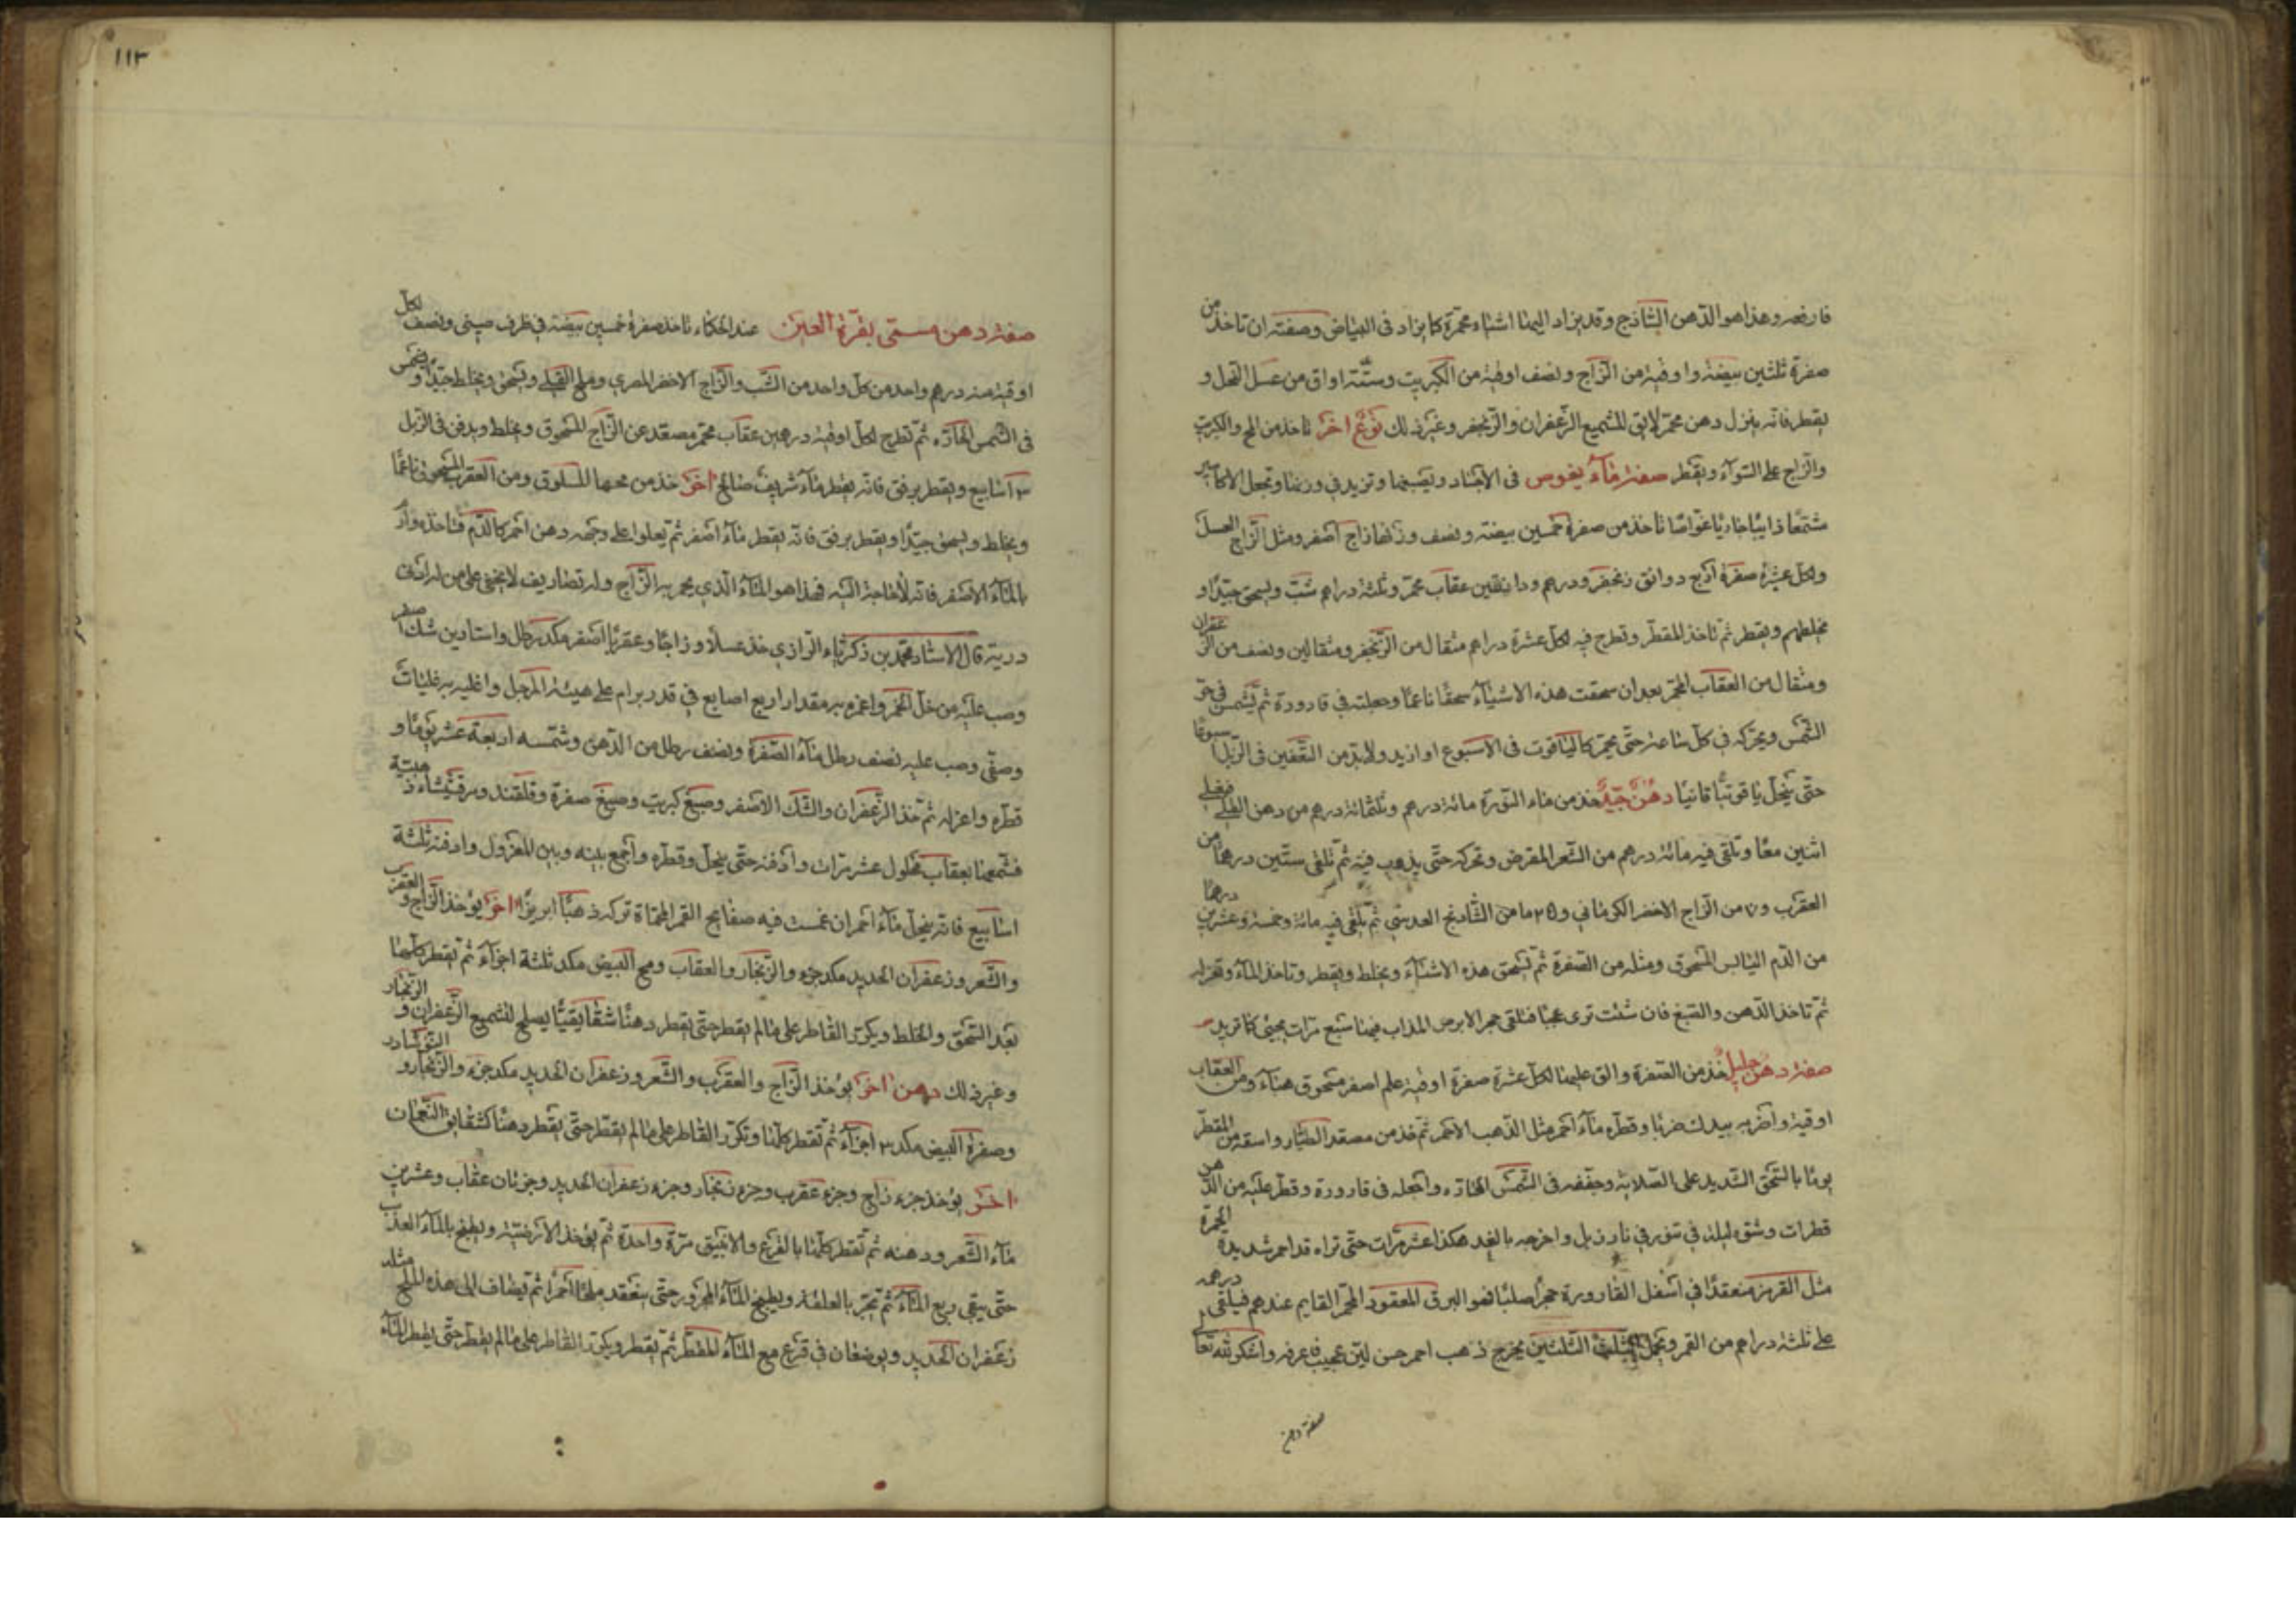 فارفعه وهذا هو الدّهن السّاذج وقد يزاد اليها اشياء محمّرة كما يزاد فى البياض وصفته ان تاخذ من
صفرة ثلثين بيضة واوقية من الزّاج ونصف اوقية من الكبريت وستّة اواق من عسل النّحل و
يقطر فانّه ينزل دهن محمّر لايق للتشميع الزّعفران والزّنجفر وغير ذلك نوع اخر تاخذ من المح والكبريت
والزّاج على السّوآء ويقطر صفة مآء يغوص فى الاجساد ويصبغها وتزيد في وزنها وتجعل الاكاسير
مشمّعا ذايبا جاريا غوّاصا تاخذ من صفرة خمسين بيضة ونصف وزنها زاج اصفر ومثل الزّاج العسل
ولكلّ عشرة صفرة اربع دوانق زنجفر ودرهم ودانقين عقاب محمّر وثلثة دراهم شبّ ويسحق جيّدا و
يخلطهم ويقطر ثمّ تاخذ المقطّر وتطرح فيه لكلّ عشرة دراهم مثقال من الزّنجفر ومثقالين ونصف من الزّعفران
ومثقال من العقاب المحمّر بعد ان سحقت هذه الاشيآء سحقًا ناعمًا وجعلته في قارورة ثمّ يشمس في حرّ
الشّمس ويحرّكه في كلّ ساعة حتّى يحمّر كالياقوت فى الاسبوع او ازيد ولابدّ من التّعفين فى الزّبل اسبوعًا
حتّى ينحلّ ياقوتيّا قانيا دهن جيّد خذ من ماء النّورة مائة درهم وثلثمائة درهم من دهن الفجل فيغلى
اثنين معًا وتلقى فيه مائة درهم من الشّعر المقرض وتحركه حتّى يذهب فيه ثمّ تلقى ستّين درهمًا من
العقرب و٧ من الزّاج الاخضر الكرمانى و٢٥ ما من الشّاذنج العدسّى ثمّ تلقى فيه مائة وخمسة وعشرين درهمًا
من الدّم اليابس المسحوق ومثله من الصّفرة ثمّ تسحق هذه الاشيآء ويخلط ويقطر وتاخذ المآء وتعزله
ثمّ تاخذ الدّهن والصّبغ فان شئت ترى عجبًا فتلقى حجر الابرص المذاب فيها سبع مرّات يجيئ كما تريد
صفة دهن جليل خذ من الصّفرة والق عليها لكلّ عشرة صفرة اوقية علم اصفر مسحوق هبآء ومن العقاب
اوقية واضربه بيدك ضربا وقطّره مآء احمر مثل الذّهب الاحمر ثمّ خذ من مصعّد الطّيّار واسقه من المقطّر
يوما بالسّحق الشّديد على الصّلاية وجفّفه فى الشّمس الحارّه واجعله فى قارورة وقطّر عليه من الدّهن
قطرات وشوّه ليلة في تنور في نار زبل واخرجه بالغد هكذا عشر مرّات حتّى تراه قد احمر شديد الحمرة
مثل القرمز منعقدًا في اسفل القارورة حجرًا صلبًا فهو البرق المعقود المحمّر القايم عندهم فيلقى درهمه
على ثلثة دراهم من القمر ويحمل الثّلثين يخرج ذهب احمر حسن ليّن عجيب فاعرفه واشكر لله تعالى
صفة دهن
١١٣
صفة دهن مسمّى بقرّة العين عند الحكماء تاخذ صفرة خمسين بيضة فى ظرف صينى ونصف لكلّ
اوقية منه درهم واحد من كلّ واحد من الشّب والزّاج الاخضر المصري وملح القلي ويسحق ويخلط جيّدًا ويشمّس
فى الشّمس الحارّه ثمّ تطرح لكلّ اوقية درهمين عقاب محمّر مصعّد عن الزّاج المسحوق ويخلط ويدفن فى الزّبل
٣ اسابيع ويقطر برفق فانّه يقطر مآء شريف صالح اخر خذ من محها المسلوق ومن العقرب المسحوق ناعمًا
ويخلط ويسحق جيّدًا ويقطر برفق فانّه يقطر مآء اصفر ثمّ يعلوا على وجهه دهن احمر كالدّم فتاخذه وارم
بالمآء الاصفر فانّه لا حاجة اليه فهذا هو المآء الّذي يحمر به الزّاج وله تصاريف لا يخفى على من له ادنى
دربة قال الاستاد محمّد بن ذكرياء الرّازي خذ عسلًا وزاجًا وعقربا اصفر مكد رطل واستادين شك اصفر
وصبّ عليه من خلّ الخمر واغمره به مقدار اربع اصابع في قدر برام على هيئة المرجل واغليه به غليات
وصفّى وصبّ عليه نصف رطل مآء الصّفرة ونصف رطل من الدّهن وشمّسه اربعة عشر يومًا و
قطّره واعزله ثمّ خذ الزّعفران والشّك الاصفر وصبغ كبريت وصبغ صفرة وقلقند ومرقشيثاء ذهبيّة
فشمّعها بعقاب محلول عشر مرّات وادفنه حتّى ينحلّ وقطّره واجمع بينه وبين المعزول وادفنه ثلثة
اسابيع فانّه ينحلّ مآء احمر ان غمست فيه صفايح القمر المحماة تركه ذهبًا ابريزًا اخر يؤخذ الزّاج والعقرب
والشّعر وزعفران الحديد مكد جزء والزّنجار والعقاب ومح البيض مكد ثلثة اجزآء ثمّ يقطر كلّها
بعد السّحق والخلط ويكرّر القاطر على مالم يقطر حتّى يقطر دهنًا شقايقيًّا يصلح لتشميع الزّعفران والزّنجار
وغير ذلك دهن اخر يؤخذ الزّاج والعقرب والشّعر وزعفران الحديد مكد جزء والزّنجار والنّوشادر
وصفرة البيض مكد ٣ اجزآء ثمّ تقطر كلّها وتكرّر القاطر على مالم يقطر حتّى يقطر دهنًا كشقايق النّعمان
اخر يؤخذ جزء زاج وجزء عقرب وجزء زنجار وجزء زعفران الحديد وجزئان عقاب وعشرين
مآء الشّعر ودهنه ثمّ تقطر كلّها بالقرع والانبيق مرّة واحدة ثمّ يؤخذ الارضيّة ويطبخ بالمآء العذب
حتّى يبقى ربع المآء ثمّ تجرّ بالعلقة ويطبخ المآء المجرور حتّى ينعقد ملحًا احمرًا ثمّ يضاف الى هذه الملح مثله
زعفران الحديد ويوضعان في قرع مع المآء المقطّر ثمّ يقطر ويكرّر القاطر على مالم يقطر حتّى يقطر المآء